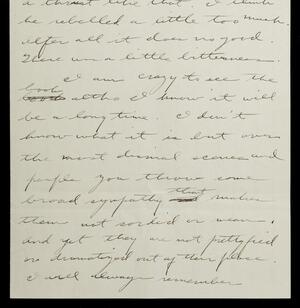 a thrust like that. I think
he rebelled a little too much.
After all it does no good.
There was a little bitterness.
I am crazy to see the
book altho I know it will
be a long time. I don't
know what it is but over
the most dismal scenes and
people you throw some
broad sympathy that makes
them not sordid or mean.
And yet they are not prettyfied
or dramatized out of their place.
I will always remember